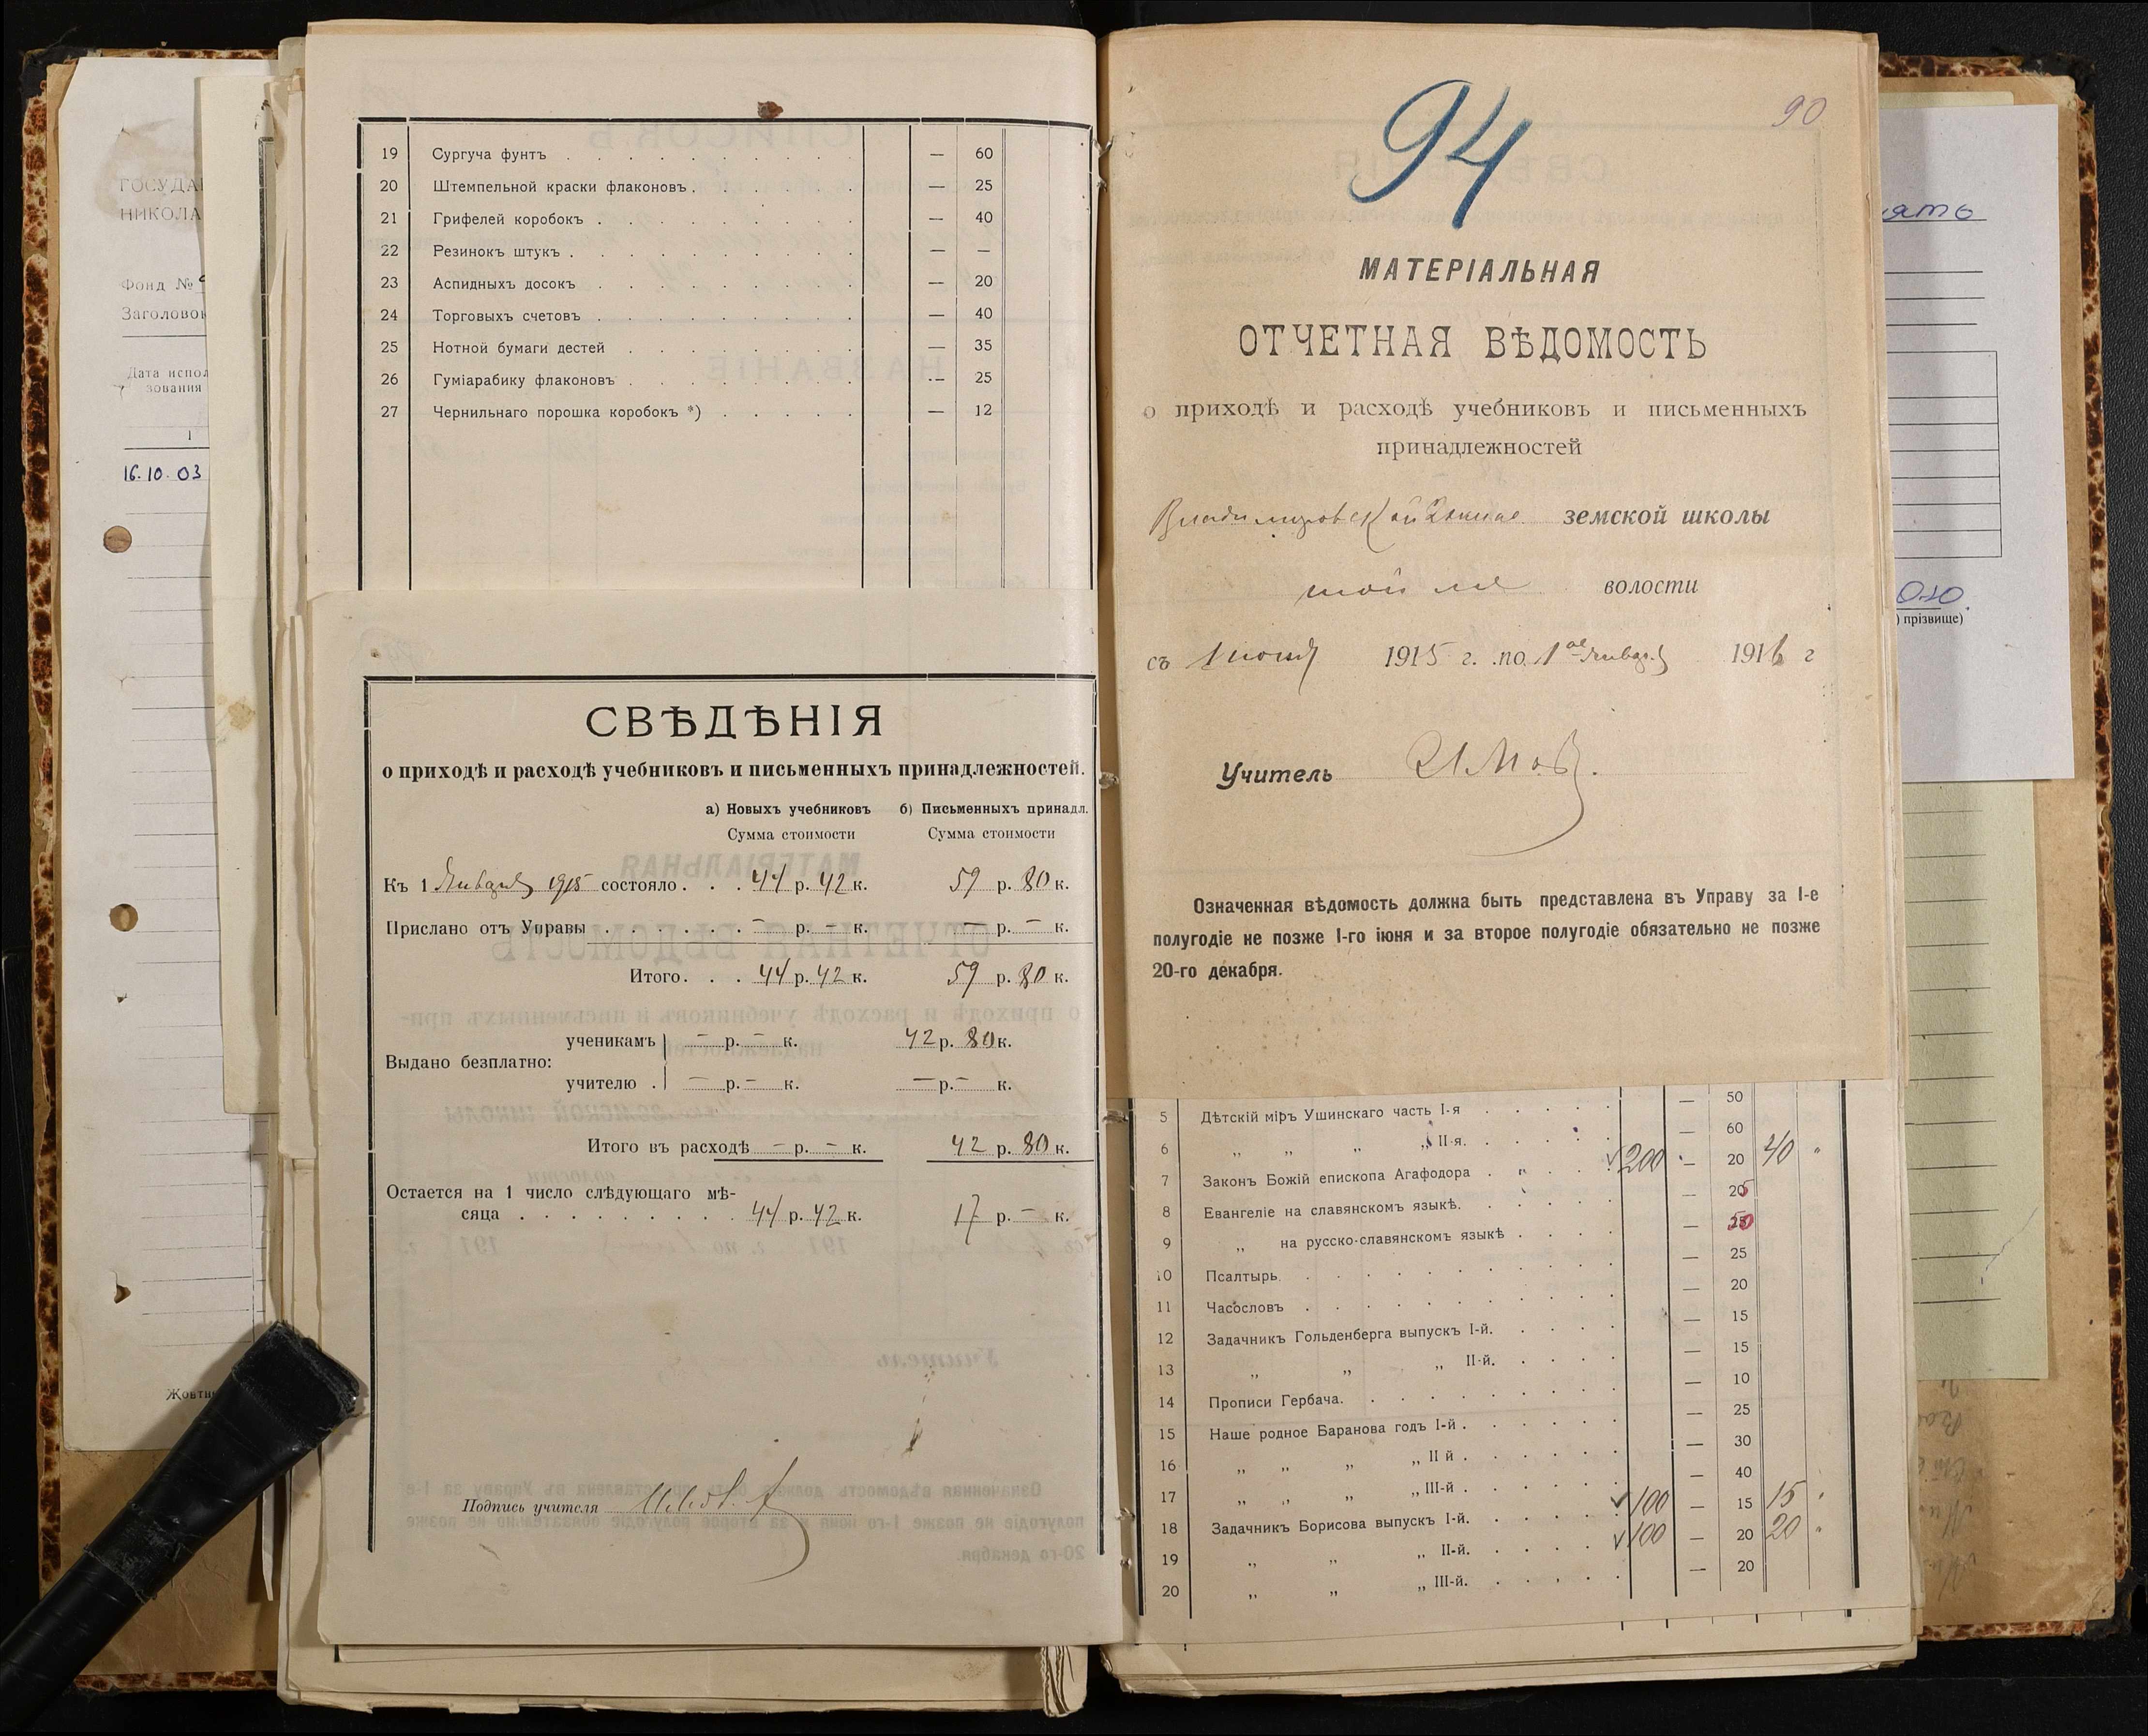 19 Сургуча фунтъ — 60
20 Штемпельной краски флаконовъ — 25
21 Грифелей коробокъ — 40
22 Резинокъ штукъ — —
23 Аспидныхъ досокъ — 20
24 Торговыхъ счетовъ — 40
25 Нотной бумаги дестей — 35
26 Гуміарабику флаконовъ — 25
27 Чернильнаго порошка коробокъ *) — 12
СВѢДѢНІЯ
о приходѣ и расходѣ учебниковъ и письменныхъ принадлежностей.
а) Новыхъ учебниковъ б) Письменныхъ принадл.
Сумма стоимости Сумма стоимости
Къ 1 Января 1915 состояло . . . 44 р. 42 к. 59 р. 80 к.
Прислано отъ Управы . . . . . . — р. — к. — р. — к.
Итого . . . 44 р. 42 к. 59 р. 80 к.
ученикамъ — р. — к. 42 р. 80 к.
Выдано безплатно:
учителю . — р. — к. — р. — к.
Итого въ расходѣ — р. — к. 42 р. 80 к.
Остается на 1 число слѣдующаго мѣ-
сяца . . . . . . . . . 44 р. 42 к. 17 р. — к.
Подпись учителя
94
90
МАТЕРІАЛЬНАЯ
ОТЧЕТНАЯ ВѢДОМОСТЬ
о приходѣ и расходѣ учебниковъ и письменныхъ
принадлежностей
Владимировской земской школы
той же волости
съ 1 1915 г. по 1ое Января 1916 г
Учитель
Означенная вѣдомость должна быть представлена въ Управу за I-е
полугодіе не позже I-го іюня и за второе полугодіе обязательно не позже
20-го декабря.
— 50
5 Дѣтскій міръ Ушинскаго часть I-я — 60
6 „ „ „ „ II-я. 200 — 20 40
7 Законъ Божій епископа Агафодора — 20
8 Евангеліе на славянскомъ языкѣ. — 50
9 „ на русско-славянскомъ языкѣ — 25
10 Псалтырь — 20
11 Часословъ — 15
12 Задачникъ Гольденберга выпускъ I-й. — 15
13 „ „ „ II-й. — 10
14 Прописи Гербача. — 25
15 Наше родное Баранова годъ I-й — 30
16 „ „ „ „ II й — 40
17 „ „ „ „ III-й 100 — 15 15
18 Задачникъ Борисова выпускъ I-й. 100 — 20 20
19 „ „ „ II-й. — 20
20 „ „ „ III-й.
ГОСУДА
НИКОЛА
Фонд №
Заголовок
Дата испол
зования
1
16.10.03
Жовтн
ять
) прізвище)